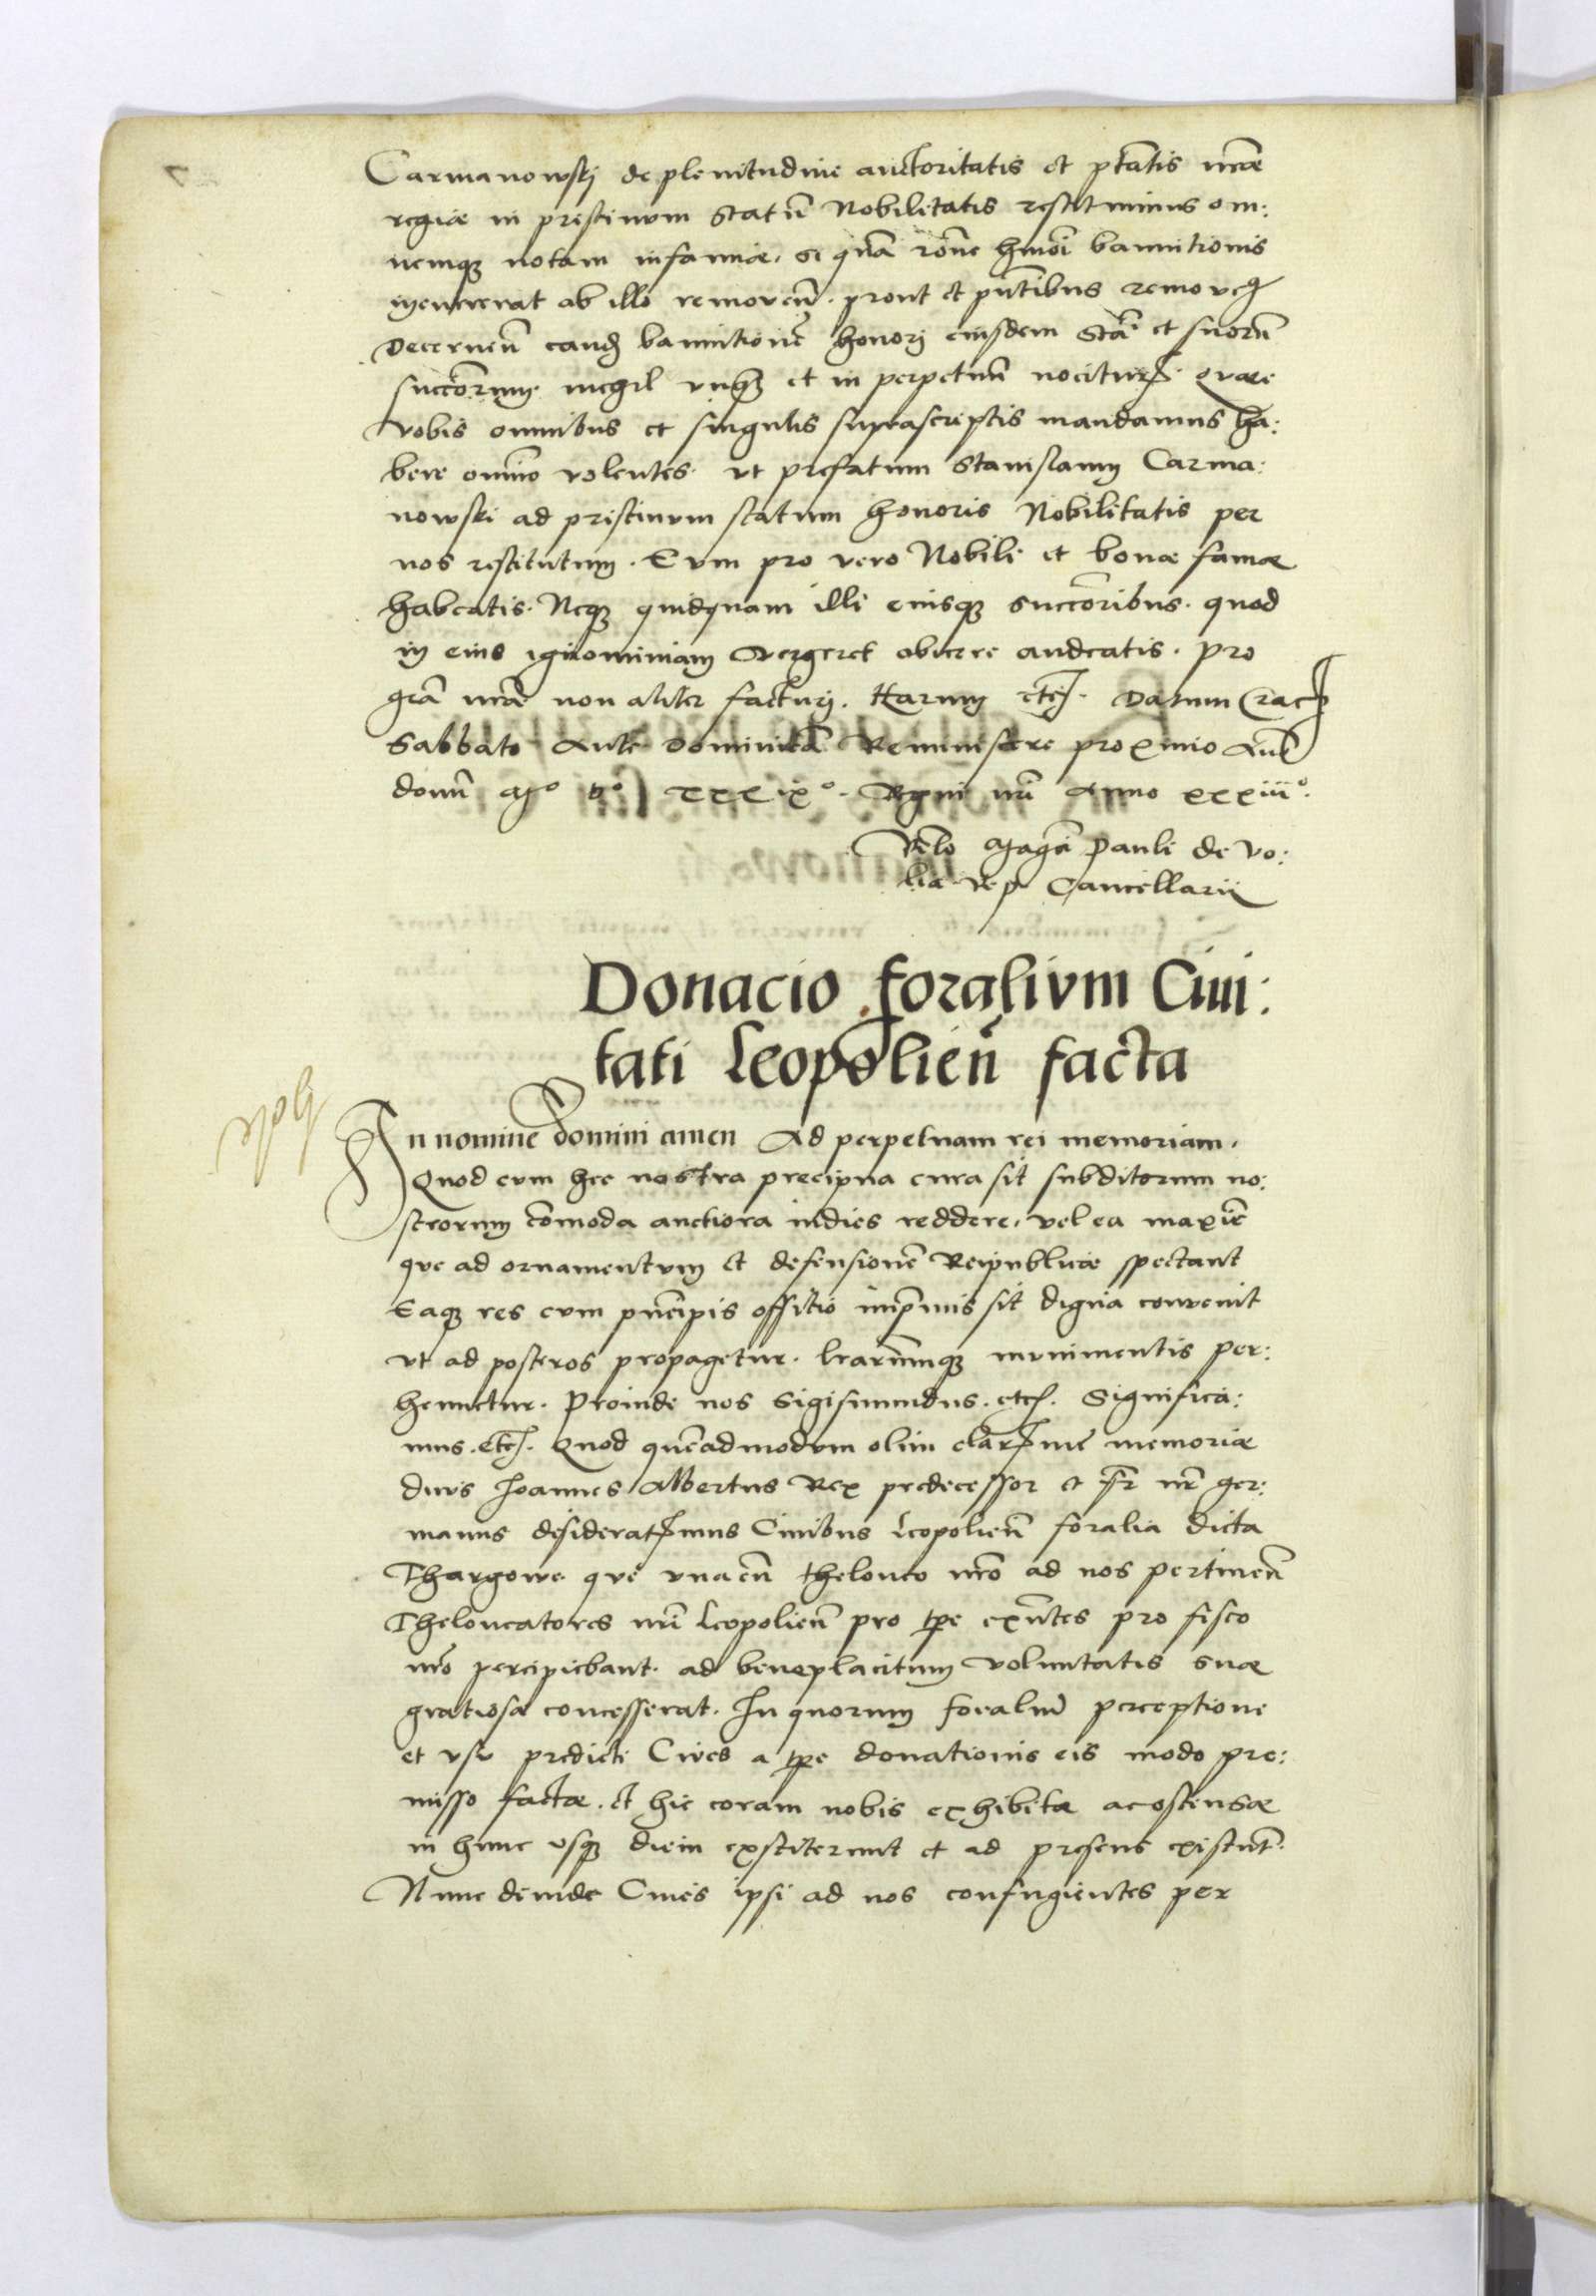 Carmanowskj de plenitudine auctoritatis et ptatis nrae
regiae in pristinum statu Nobilitatis restituimus om:
nemq notam infamiae, si qua rone hmoi bannitionis
incurrerat ab illo removen. prout et pntibus removem
Decernen eand bannitione honorj eiusdem Sta et suoru
succorum nichil unq et in perpetuu nocitur. Quare
vobis omnibus et singulis suprascriptis mandamus ha:
bere omnio volentes. ut prefatum Stanislaum Carma:
nowski ad pristinum statum honoris Nobilitatis per
nos restitutum. Eum pro vero Nobili et bonae famae
habeatis. Neq quidquam illi eiusq succoribus. quod
in eius ignominiam vergeret obiicere audeatis. pro
gra nra non aliter facturj. Harum etc. Datum Crac
Sabbato Ante Dominica Reminiscere proximo Anno
domi Mo vo xxxixo. Regni nri Anno xxxiiio.
Relo Magci Pauli de Vo:
lia Rep Cancellarii
Donacio foralium Ciui:
tati Leopolien facta
In nomine Domini amen Ad perpetuam rei memoriam.
Quod cum hec nostra precipua cura sit subditorum no:
strorum comoda auctiora indies reddere, vel ea maxie
que ad ornamentum et defensione Reipublicae spectant
Eaq res cum pncipis offitio imprimis sit digna convenit
ut ad posteros propagetur. lrarumq munimentis per:
hennetur. Proinde nos Sigismundus. etc. Significa:
mus. etc. Quod queadmodum olim clarme memoriae
divus Joannes Albertus Rex predecessor et fr nr ger:
manus desideratmus Civibus Leopolien foralia dicta
Thargowe que una cu theloneo nro ad nos pertinen
Theloneatores nri Leopolien pro tpe exntes pro fisco
nro percipiebant. ad beneplacitum voluntatis suae
gratiosa concesserat. In quorum foraliu perceptione
et usu predicti Cives a tpe donationis eis modo pre:
misso factae. et hic coram nobis exhibitae ac ostensae
in hunc usq diem exstiterunt et ad presens existunt.
Nunc deinde Cives ipsi ad nos confugientes per